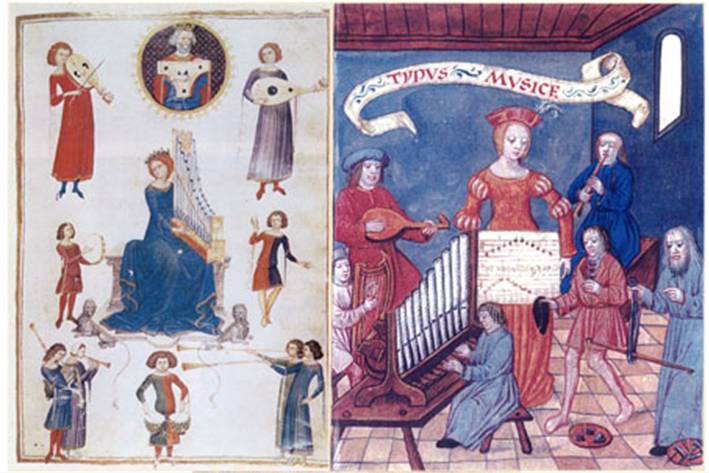 TYPVS MVSICE